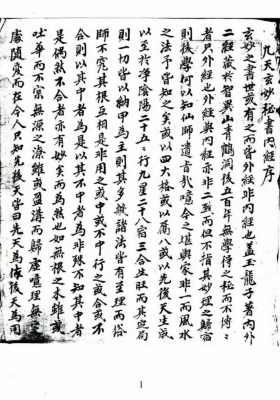 九天玄妙秘書內經序
玄妙之書世或有之而皆外經非內經也蓋玉龍子著內外
二經藏於智異山青鶴洞後五百年無學得之秘而不傳
者只外經也外經與內經而但不指其妙理之歸宿
則後學何以知仙師遺書哉噫今之堪輿家非一而風水
之法予皆知之矣或以四大格或以八或以先後天生成
以至於學陰陽二十五行九星二十八宿三合生旺而其定局
則一切皆以納甲為主則其多岐諸法皆有至理而俗
師不究其根互相是非用之或中或不中行之或合或不
合則以其中者為是以其不中者為非殊不知其中者
是偶然不合者亦有妙矣而為然也如無根之木雖或
吐華而不實無源之流雖或盈溝而歸虛噫理無
處隨處而在今人只知先後天皆曰先天為体後天為用
1